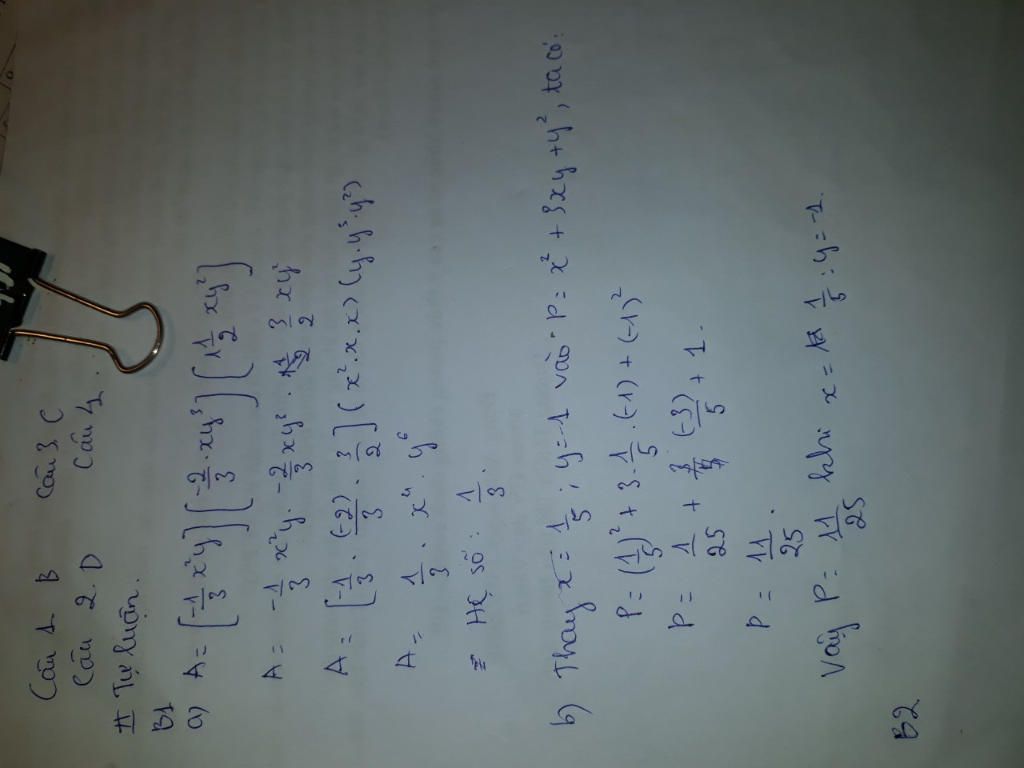 Câu 1. B Câu 3. C
Câu 2. D Câu 4.
II Tự luận.
B1
a) A = [-1/3 x²y] [-2/3 · xy³] [1 1/2 xy²]
A = -1/3 x²y · -2/3 xy³ · 3/2 xy²
A = [-1/3 · (-2)/3 · 3/2] (x² · x · x) (y · y³ · y²)
A = 1/3 · x⁴ · y⁶
Hệ số: 1/3.
b) Thay x = 1/5 ; y = -1 vào P = x² + 3xy + y², ta có:
P = (1/5)² + 3 · 1/5 · (-1) + (-1)²
P = 1/25 + (-3)/5 + 1.
P = 11/25.
Vậy P = 11/25 khi x = 1/5 ; y = -1.
B2